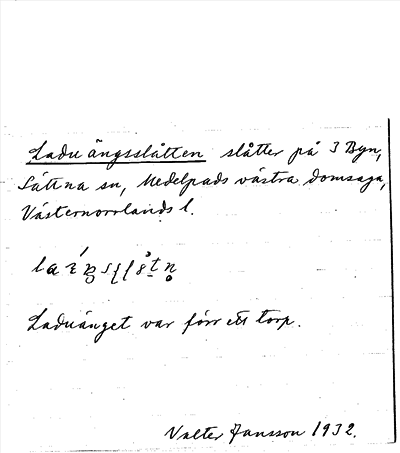 Laduängsslåtten slåtter på 3 Byn,
Sättna sn, Medelpads västra domsaga,
Västernorrlands l.
Laduänget var förr ett torp.
Valter Jansson 1932.